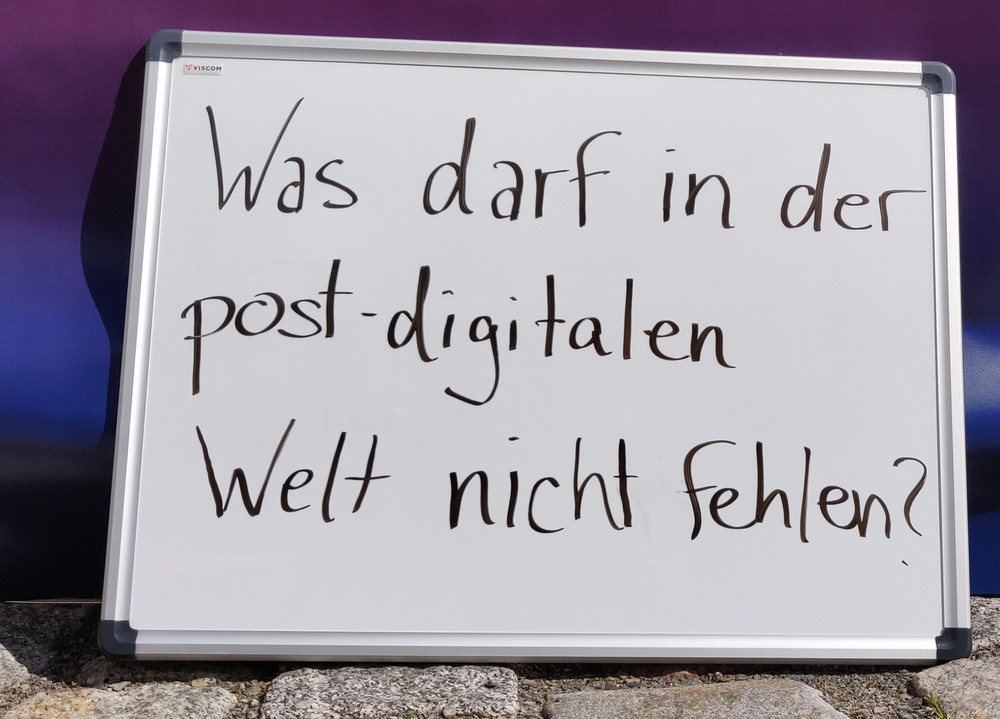 VISCOM
Was darf in der
post-digitalen
Welt nicht fehlen?